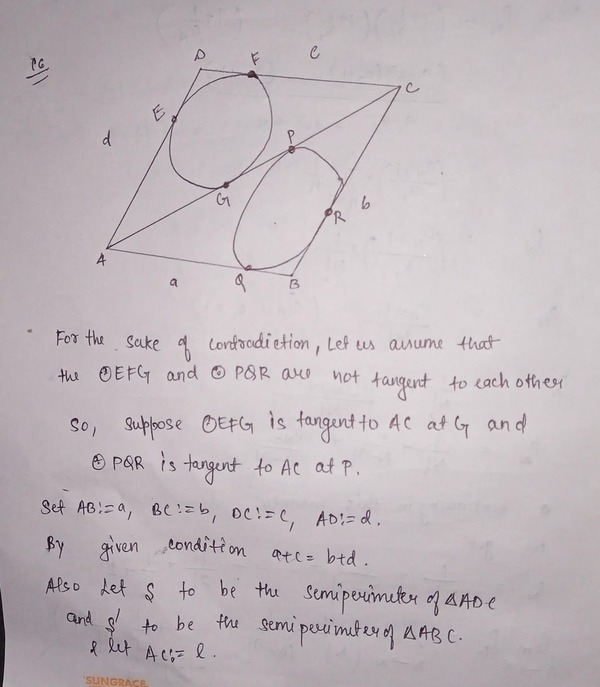 P6
D F c
C
E
d
P
G
R b
A
a Q B
For the sake of contradiction, Let us assume that
the ⊙EFG and ⊙ PQR are not tangent to each other
so, suppose ⊙EFG is tangent to AC at G and
⊙ PQR is tangent to AC at P.
Set AB:=a, BC:=b, DC:=c, AD:=d.
By given condition a+c= b+d.
Also Let S to be the semiperimeter of △ADC
and S' to be the semiperimeter of △ABC.
& let AC:= l.
SUNGRACE